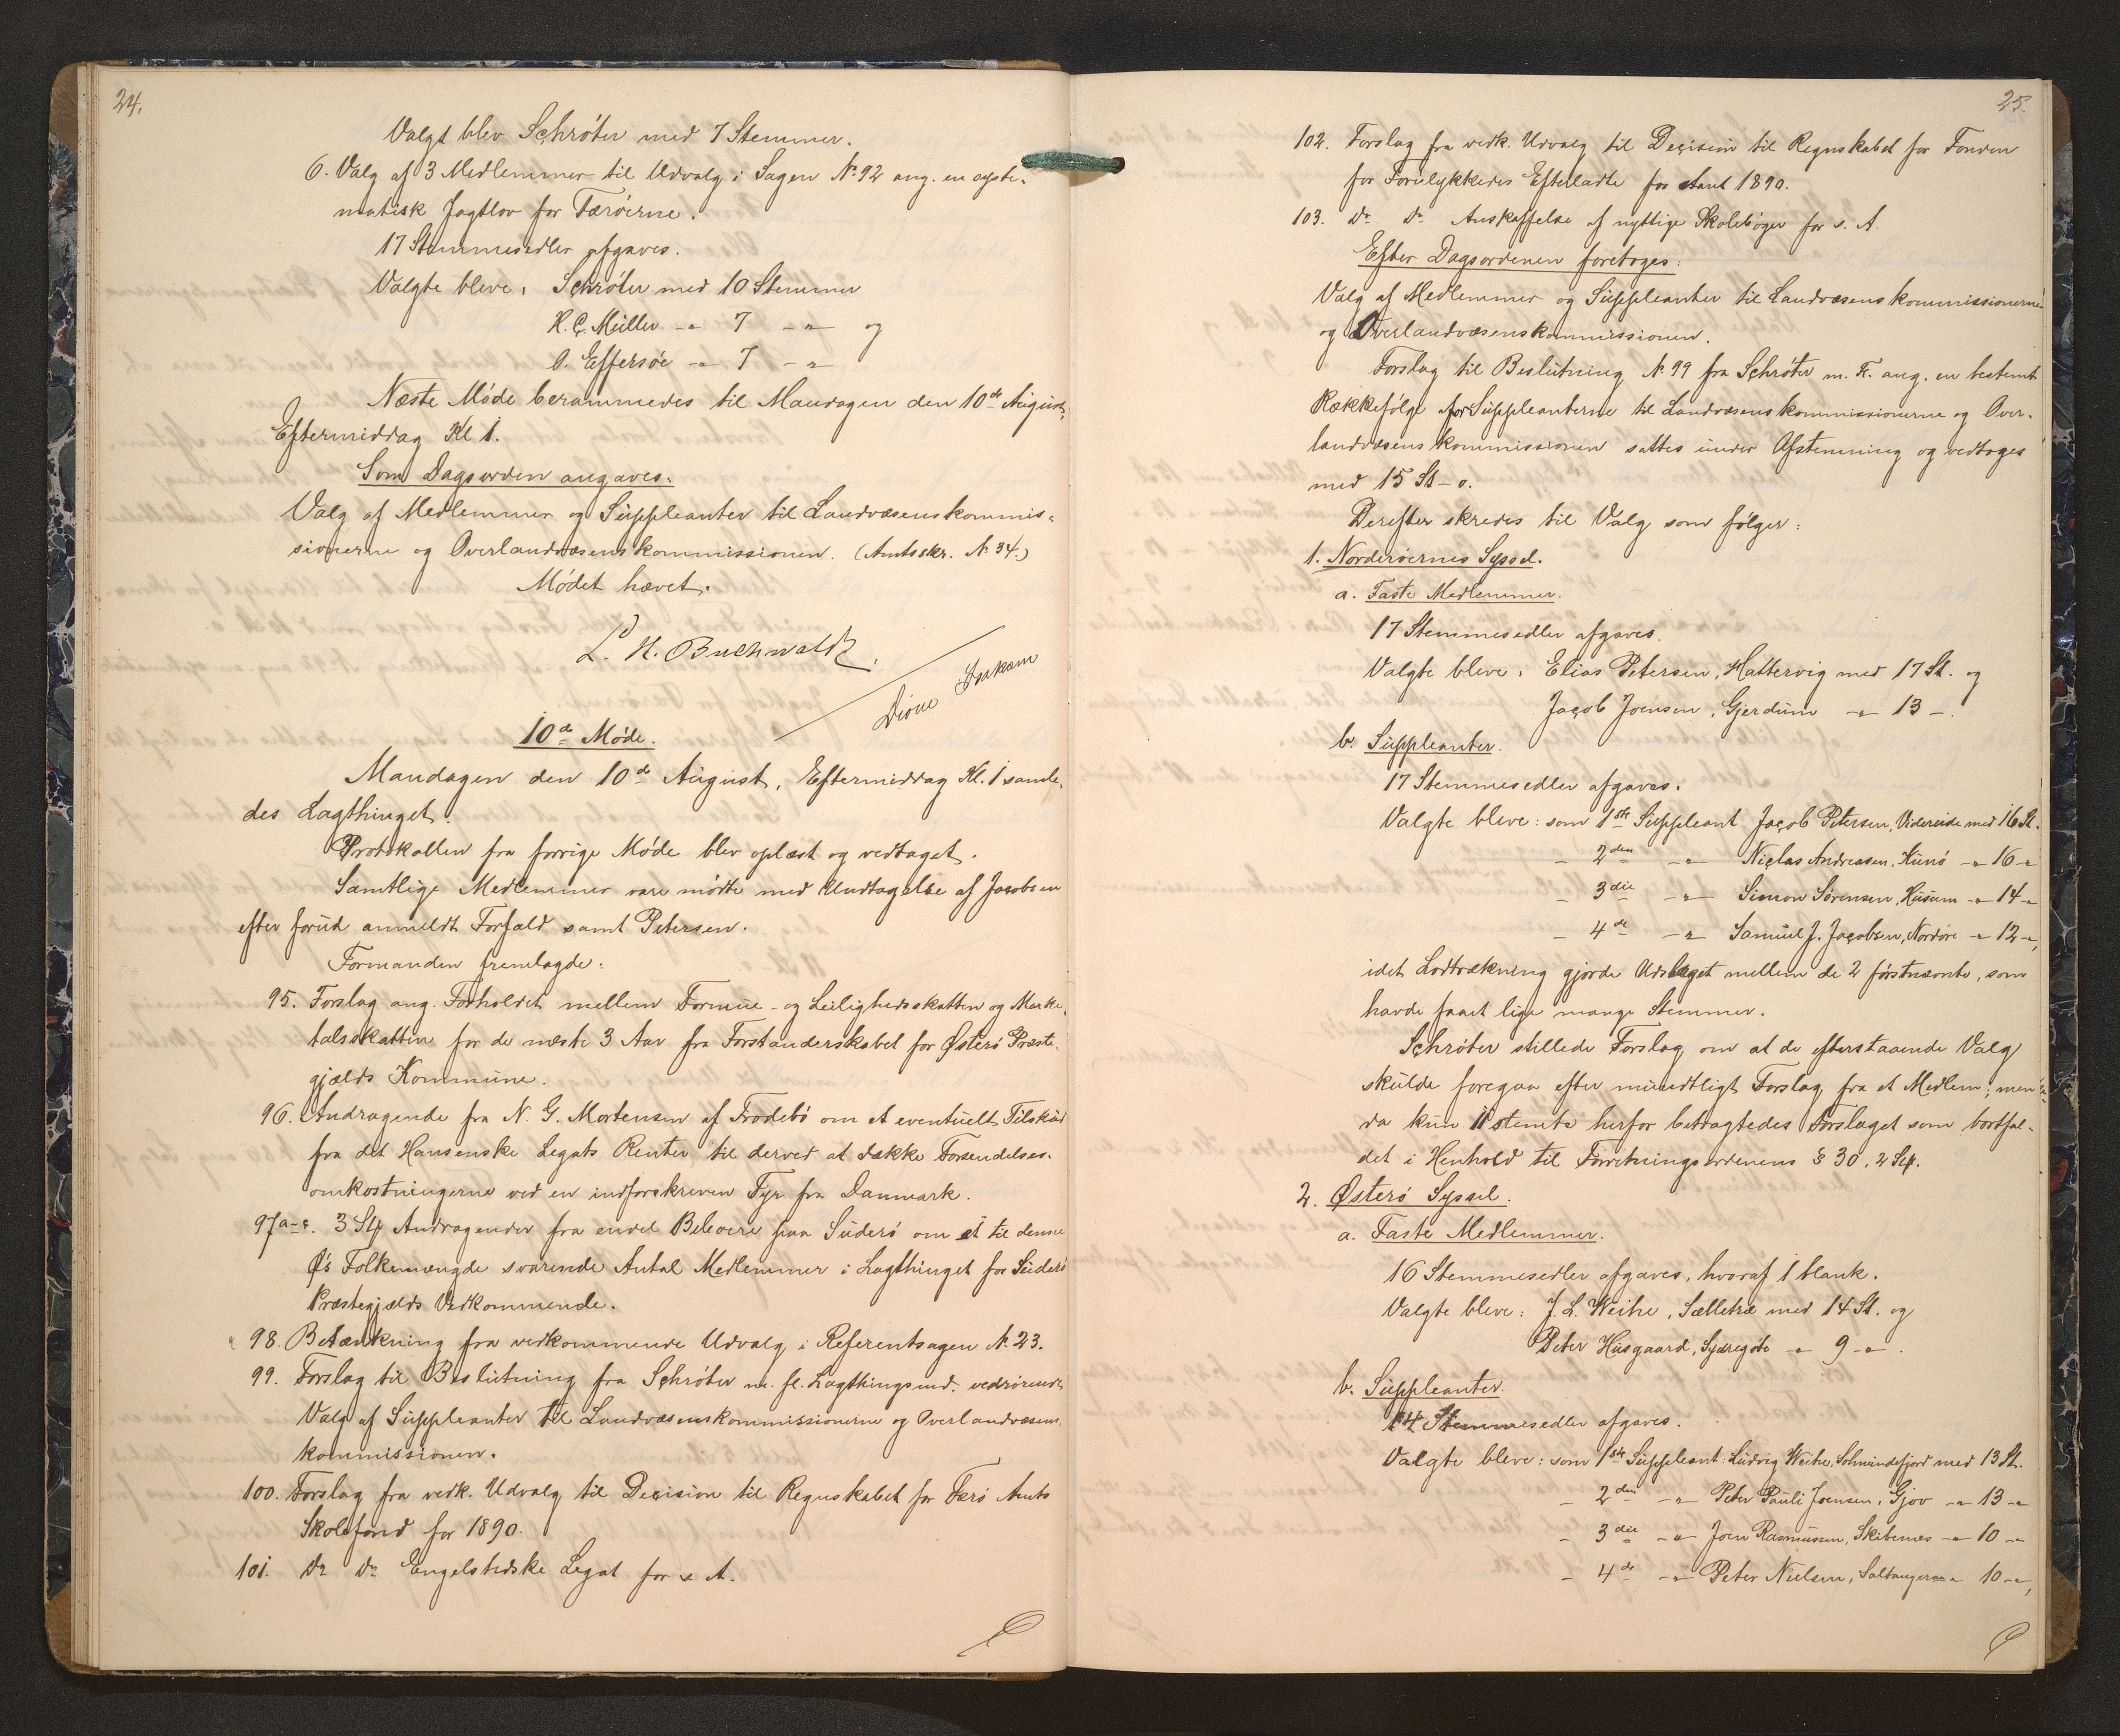 24.
Valgt blev Schrøter med 7 Stemmer.
6. Valg af 3 Medlemmer til Udvalg i Sagen No 92 ang. en syste-
matisk Jagtlov for Færøerne.
17 Stemmesedler afgaves.
Valgte bleve: Schrøter med 10 Stemmer
H. C. Müller -"- 7 -"- og
O. Effersøe -"- 7 -"-
Næste Møde berammedes til Mandagen den 10de August,
Eftermiddag Kl 1.
Som Dagsorden angaves:
Valg af Medlemmer og Suppleanter til Landvæsenskommis-
sionerne og Overlandvæsenskommissionen. (Amtsskr. No 34.)
Mødet hævet.
L. H. Buchwaldt.
Dion Isakson
10de Møde.
Mandagen den 10de August, Eftermiddag Kl. 1 samle-
des Lagthinget.
Protokollen fra forrige Møde blev oplæst og vedtaget.
Samtlige Medlemmer vare mødte med Undtagelse af Jacobsen
efter forud anmeldt Forfald samt Petersen.
Formanden fremlagde:
95. Forslag ang. Forholdet mellem Formue- og Leilighedsskatten og Marke-
talsskatten for de næste 3 Aar fra Forstanderskabet for Østerø Præste-
gjælds Kommune.
96. Andragende fra N. G. Mortensen af Frodebø om et eventuelt Tilskud
fra det Hansenske Legats Renter til derved at dække Forsendelses-
omkostningerne ved en indforskreven Tyr fra Danmark.
97 a-c. 3 Stk Andragender fra endel Beboere paa Suderø om et til denne
Ø's Folkemængde svarende Antal Medlemmer i Lagthinget for Suderø
Præstegjælds Vedkommende.
98. Betænkning fra vedkommende Udvalg i Referentsagen No 23.
99. Forslag til Beslutning fra Schrøter m. fl. Lagthingsmd. vedrørende
Valg af Suppleanter til Landvæsenskommissionerne og Overlandvæsens-
kommissionen.
100. Forslag fra vedk. Udvalg til Decision til Regnskabet for Færø Amts
Skolefond for 1890.
101. Do Do Engelstedske Legat for s. A.
25.
102. Forslag fra vedk. Udvalg til Decision til Regnskabet for Fonden
for Forulykkedes Efterladte for Aaret 1890.
103. Do Do Anskaffelse af nyttige Skolebøger for s. A.
Efter Dagsordenen foretoges:
Valg af Medlemmer og Suppleanter til Landvæsenskommissionerne
og Overlandvæsenskommissionen.
Forslag til Beslutning No 99 fra Schrøter m. Fl. ang. en bestemt
Rækkefølge for Suppleanterne til Landvæsenskommissionerne og Over-
landvæsenskommissionen sattes under Afstemning og vedtoges
med 15 St - 0.
Derefter skredes til Valg som følger:
1. Norderøernes Syssel.
a. Faste Medlemmer.
17 Stemmesedler afgaves.
Valgte bleve: Elias Petersen, Hattervig med 17 St. og
Jacob Joensen, Gjerdum -"- 13 -.
b. Suppleanter.
17 Stemmesedler afgaves.
Valgte bleve: som 1ste Suppleant Jacob Petersen, Videreide med 16 St.
- 2den -"- Niclas Andreasen, Kunø -"- 16 -"-
- 3die -"- Simon Sørensen, Husum -"- 14 -"-
- 4de -"- Samuel J. Jacobsen, Nordøre -"- 12 -"-,
idet Lodtrækning gjorde Udslaget mellem de 2 førstnævnte, som
havde faaet lige mange Stemmer.
Schrøter stillede Forslag om at de efterstaaende Valg
skulde foregaa efter mundtligt Forslag fra et Medlem; men
da kun 11 stemte herfor betragtedes Forslaget som bortfal-
det i Henhold til Forretningsordenens § 30, 2 Stk.
2. Østerø Syssel.
a. Faste Medlemmer.
16 Stemmesedler afgaves, hvoraf 1 blank.
Valgte bleve: J. L. Weihe, Sælletræ med 14 St. og
Peter Husgaard, Sydregøte -"- 9 -"-.
b. Suppleanter.
14 Stemmesedler afgaves.
Valgte bleve: som 1ste Suppleant Ludvig Weihe, Solmundefjord med 13 St.
- 2den -"- Peter Pauli Joensen, Gjov -"- 13 -"-
- 3die -"- Joen Rasmussen, Skibenæs -"- 10 -"-
- 4de -"- Peter Nielsen, Saltangeraa -"- 10 -"-,